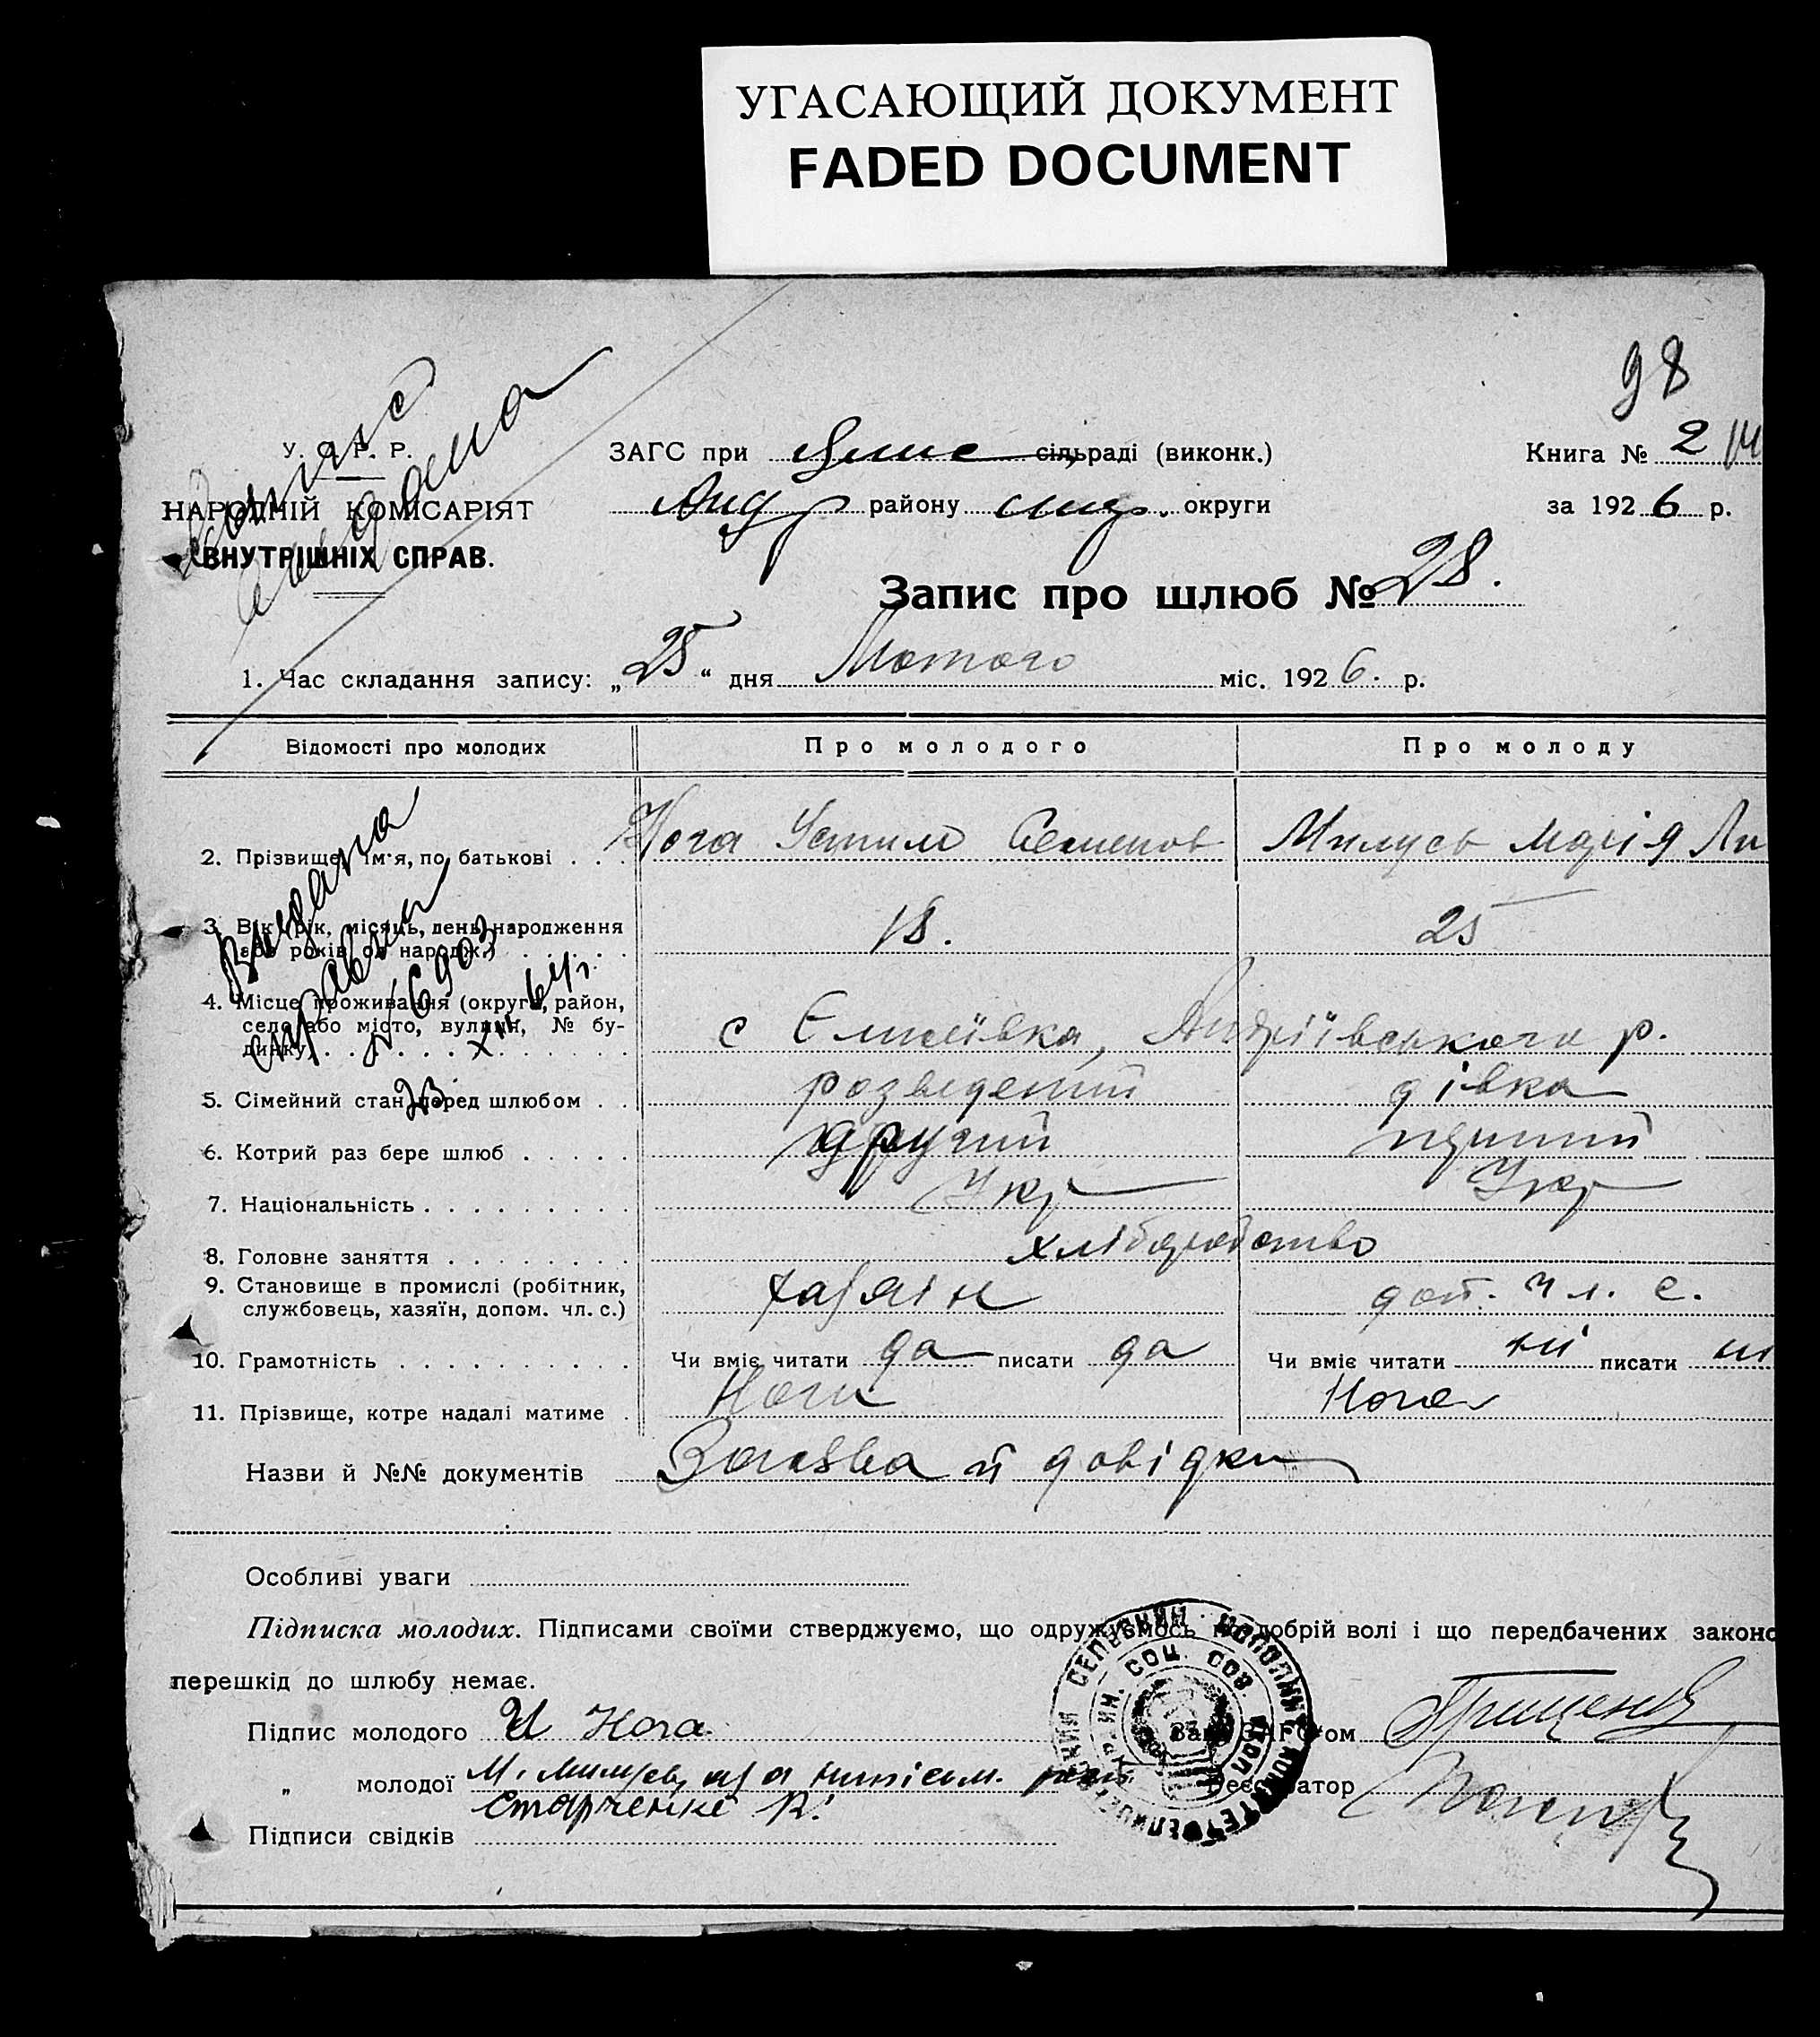 УГАСАЮЩИЙ ДОКУМЕНТ
FADED DOCUMENT
98
У. С. Р. Р.
ЗАГС при сільраді (виконк.)
Книга № 2
НАРОДНІЙ КОМІСАРІЯТ
Анд р району округи
за 1926 р.
ВНУТРІШНІХ СПРАВ.
Запис про шлюб № 28.
1. Час складання запису: „25“ дня Лютого міс. 1926. р.
Відомості про молодих Про молодого Про молоду
2. Прізвище, ім'я, по батькові . . . Нога Устим Семенов Милусь Марія
Видана
справка
№ 6903
3. Вік (рік, місяць, день народження або років од народж.) . . . . . 18. 25
4. Місце проживання (округа, район,
село або місто, вулиця, № бу-
динку) . . . с Єлисеївка, Андріївського р.
5. Сімейний стан перед шлюбом . . розведений дівка
6. Котрий раз бере шлюб . . . . . другий перший
7. Національність . . . . . . . . . Укр Укр
8. Головне заняття . . . . . . . . хліборобство
9. Становище в промислі (робітник,
службовець, хазяїн, допом. чл. с.) хазяін доп. чл. с.
10. Грамотність . . . . . . . . . . Чи вміє читати да писати да Чи вміє читати ні писати ні
11. Прізвище, котре надалі матиме . Нога Нога
Назви й №№ документів Заява й довідки
Особливі уваги
Підписка молодих. Підписами своїми стверджуємо, що одружуємось по добрій волі і що передбачених законо
перешкід до шлюбу немає.
Підпис молодого У Нога Зав. ЗАГС'ом Грищенко
„ молодої М. Милусь за неписьм. Реєстратор
Старченко
Підписи свідків